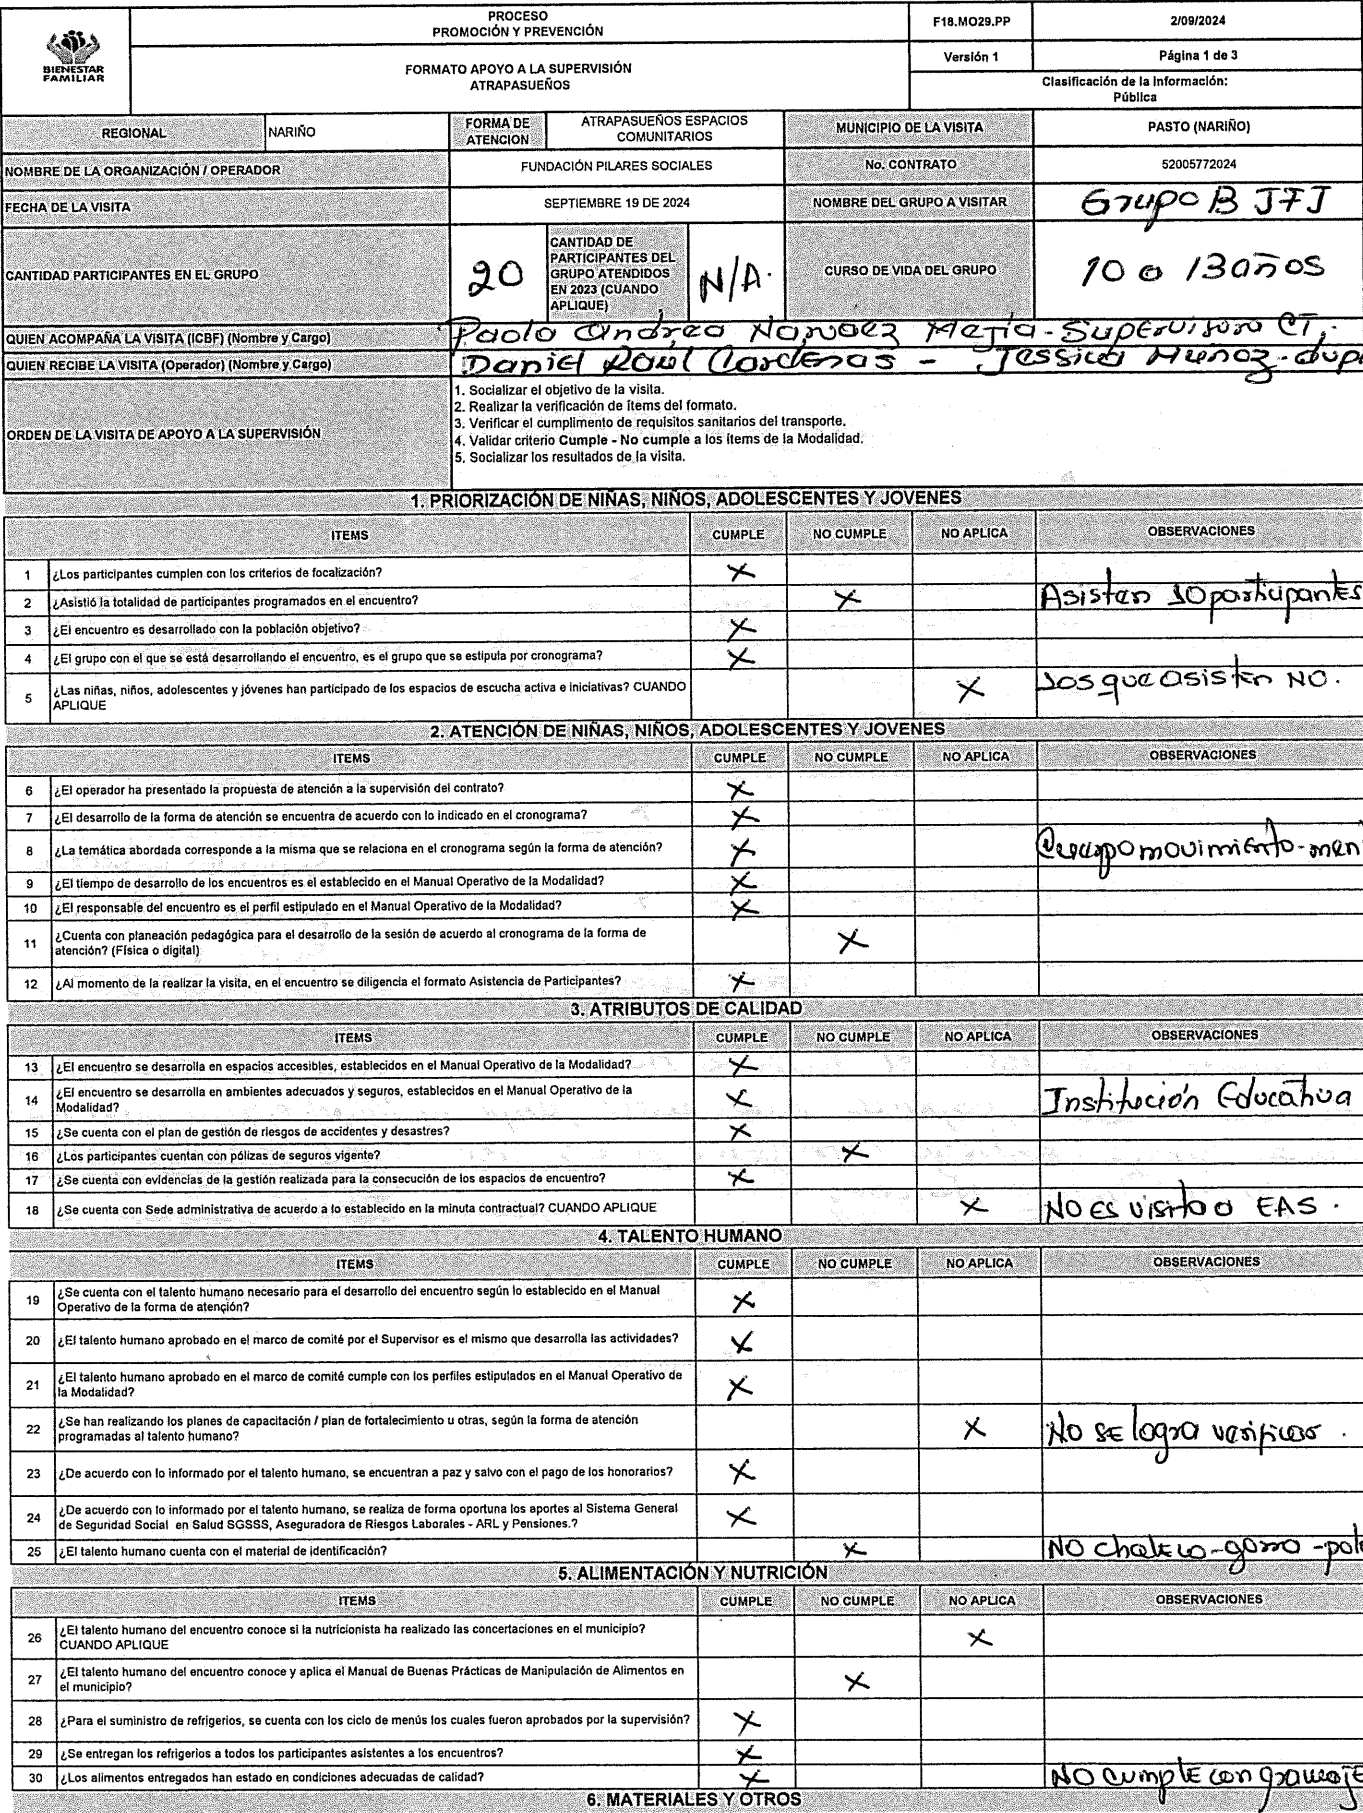 BIENESTAR
FAMILIAR
PROCESO
PROMOCIÓN Y PREVENCIÓN
F18.MO29.PP
2/09/2024
FORMATO APOYO A LA SUPERVISIÓN
ATRAPASUEÑOS
Versión 1
Página 1 de 3
Clasificación de la Información:
Pública
REGIONAL
NARIÑO
FORMA DE
ATENCION
ATRAPASUEÑOS ESPACIOS
COMUNITARIOS
MUNICIPIO DE LA VISITA
PASTO (NARIÑO)
NOMBRE DE LA ORGANIZACIÓN / OPERADOR
FUNDACIÓN PILARES SOCIALES
No. CONTRATO
52005772024
FECHA DE LA VISITA
SEPTIEMBRE 19 DE 2024
NOMBRE DEL GRUPO A VISITAR
Grupo B JFJ
CANTIDAD PARTICIPANTES EN EL GRUPO
20
CANTIDAD DE
PARTICIPANTES DEL
GRUPO ATENDIDOS
EN 2023 (CUANDO
APLIQUE)
N/A.
CURSO DE VIDA DEL GRUPO
10 a 13 años
QUIEN ACOMPAÑA LA VISITA (ICBF) (Nombre y Cargo)
Paola Andrea Narvaez Mejia - Supervisora CT.
QUIEN RECIBE LA VISITA (Operador) (Nombre y Cargo)
Daniel Raul Cardenas - Jessica Muñoz
ORDEN DE LA VISITA DE APOYO A LA SUPERVISIÓN
1. Socializar el objetivo de la visita.
2. Realizar la verificación de ítems del formato.
3. Verificar el cumplimento de requisitos sanitarios del transporte.
4. Validar criterio Cumple - No cumple a los ítems de la Modalidad.
5. Socializar los resultados de la visita.
1. PRIORIZACIÓN DE NIÑAS, NIÑOS, ADOLESCENTES Y JOVENES
ITEMS CUMPLE NO CUMPLE NO APLICA OBSERVACIONES
1 ¿Los participantes cumplen con los criterios de focalización? X
2 ¿Asistió la totalidad de participantes programados en el encuentro? X Asisten 10 participantes
3 ¿El encuentro es desarrollado con la población objetivo? X
4 ¿El grupo con el que se está desarrollando el encuentro, es el grupo que se estipula por cronograma? X
5 ¿Las niñas, niños, adolescentes y jóvenes han participado de los espacios de escucha activa e iniciativas? CUANDO
APLIQUE X Los que asisten NO.
2. ATENCIÓN DE NIÑAS, NIÑOS, ADOLESCENTES Y JOVENES
ITEMS CUMPLE NO CUMPLE NO APLICA OBSERVACIONES
6 ¿El operador ha presentado la propuesta de atención a la supervisión del contrato? X
7 ¿El desarrollo de la forma de atención se encuentra de acuerdo con lo indicado en el cronograma? X
8 ¿La temática abordada corresponde a la misma que se relaciona en el cronograma según la forma de atención? X Cuerpo movimiento-men
9 ¿El tiempo de desarrollo de los encuentros es el establecido en el Manual Operativo de la Modalidad? X
10 ¿El responsable del encuentro es el perfil estipulado en el Manual Operativo de la Modalidad? X
11 ¿Cuenta con planeación pedagógica para el desarrollo de la sesión de acuerdo al cronograma de la forma de
atención? (Física o digital) X
12 ¿Al momento de la realizar la visita, en el encuentro se diligencia el formato Asistencia de Participantes? X
3. ATRIBUTOS DE CALIDAD
ITEMS CUMPLE NO CUMPLE NO APLICA OBSERVACIONES
13 ¿El encuentro se desarrolla en espacios accesibles, establecidos en el Manual Operativo de la Modalidad? X
14 ¿El encuentro se desarrolla en ambientes adecuados y seguros, establecidos en el Manual Operativo de la
Modalidad? X Institución Educativa
15 ¿Se cuenta con el plan de gestión de riesgos de accidentes y desastres? X
16 ¿Los participantes cuentan con pólizas de seguros vigente? X
17 ¿Se cuenta con evidencias de la gestión realizada para la consecución de los espacios de encuentro? X
18 ¿Se cuenta con Sede administrativa de acuerdo a lo establecido en la minuta contractual? CUANDO APLIQUE X NO es visita a EAS.
4. TALENTO HUMANO
ITEMS CUMPLE NO CUMPLE NO APLICA OBSERVACIONES
19 ¿Se cuenta con el talento humano necesario para el desarrollo del encuentro según lo establecido en el Manual
Operativo de la forma de atención? X
20 ¿El talento humano aprobado en el marco de comité por el Supervisor es el mismo que desarrolla las actividades? X
21 ¿El talento humano aprobado en el marco de comité cumple con los perfiles estipulados en el Manual Operativo de
la Modalidad? X
22 ¿Se han realizando los planes de capacitación / plan de fortalecimiento u otras, según la forma de atención
programadas al talento humano? X No se logra verificar.
23 ¿De acuerdo con lo informado por el talento humano, se encuentran a paz y salvo con el pago de los honorarios? X
24 ¿De acuerdo con lo informado por el talento humano, se realiza de forma oportuna los aportes al Sistema General
de Seguridad Social en Salud SGSSS, Aseguradora de Riesgos Laborales - ARL y Pensiones.? X
25 ¿El talento humano cuenta con el material de identificación? X NO chaleco-gorro
5. ALIMENTACIÓN Y NUTRICIÓN
ITEMS CUMPLE NO CUMPLE NO APLICA OBSERVACIONES
26 ¿El talento humano del encuentro conoce si la nutricionista ha realizado las concertaciones en el municipio?
CUANDO APLIQUE X
27 ¿El talento humano del encuentro conoce y aplica el Manual de Buenas Prácticas de Manipulación de Alimentos en
el municipio? X
28 ¿Para el suministro de refrigerios, se cuenta con los ciclo de menús los cuales fueron aprobados por la supervisión? X
29 ¿Se entregan los refrigerios a todos los participantes asistentes a los encuentros? X
30 ¿Los alimentos entregados han estado en condiciones adecuadas de calidad? X NO cumple con gramaje
6. MATERIALES Y OTROS